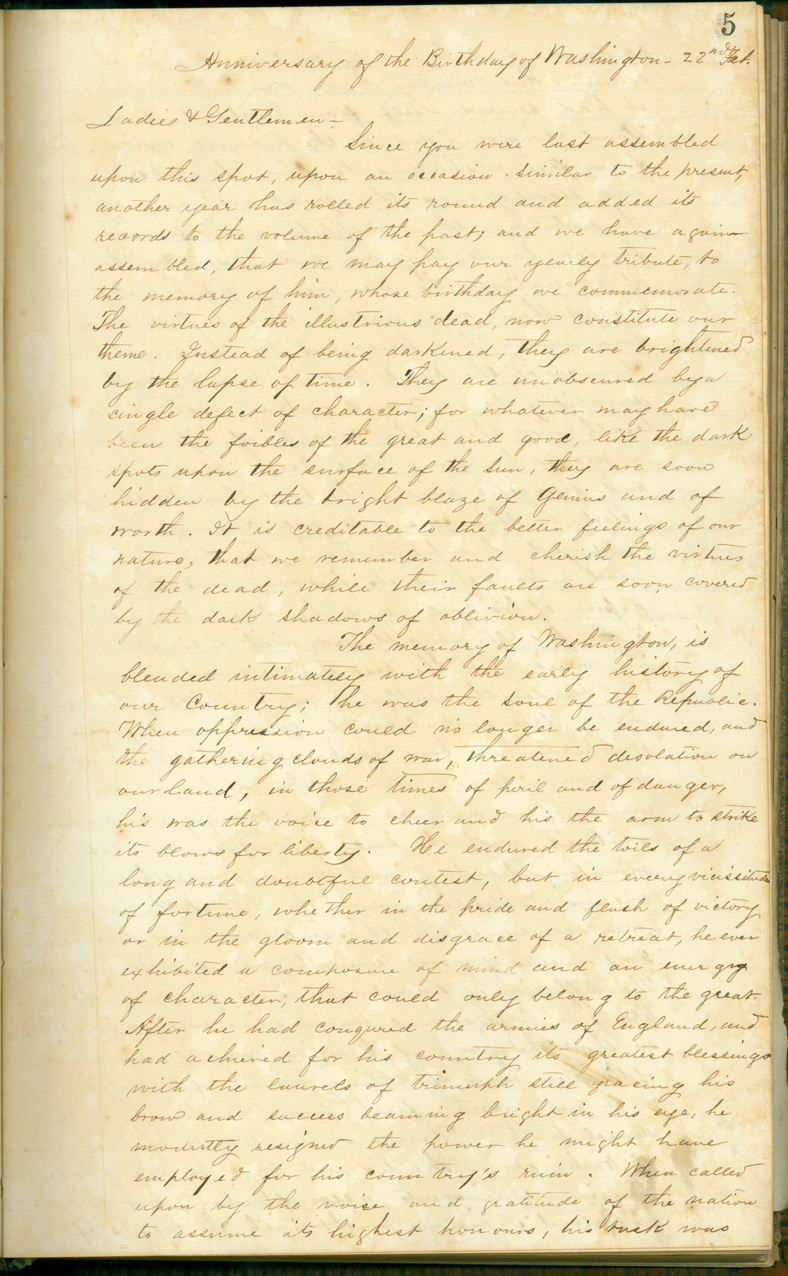 5
Anniversary of the Birthday of Washington - 22nd Feb.
Ladies & Gentlemen -
Since you were last assembled
upon this spot, upon an occasion similar to the present,
another year has rolled its round and added its
records to the volume of the past; and we have again
assembled, that we may pay our yearly tribute, to
the memory of him, whose birthday we commemorate.
The virtues of the illustrious dead, now constitute our
theme. Instead of being darkened, they are brightened
by the lapse of time. They are unobscured by a
single defect of character; for whatever may have
been the foibles of the great and good, like the dark
spots upon the surface of the Sun, they are soon
hidden by the bright blaze of Genius and of
worth. It is creditable to the better feelings of our
nature, that we remember and cherish the virtues
of the dead, while their faults are soon covered
by the dark shadows of oblivion.
The memory of Washington, is
blended intimately with the early history of
our Country; he was the soul of the Republic.
When oppression could no longer be endured, and
the gathering clouds of war, threatened desolation on
our land, in those times of peril and of danger,
his was the voice to cheer and his the arm to strike
its blows for liberty. He endured the toils of a
long and doubtful contest, but in every vicissitude
of fortune, whether in the pride and flush of victory
or in the gloom and disgrace of a retreat, he ever
exhibited a composure of mind and an energy
of character, that could only belong to the great.
After he had conqured the armies of England, and
had achieved for his country its greatest blessings
with the laurels of triumph still gracing his
brow and success beaming bright in his eye, he
modestly resigned the power he might have
employed for his country's ruin. When called
upon by the voice and gratitude of the nation
to assume its highest honours, his task was